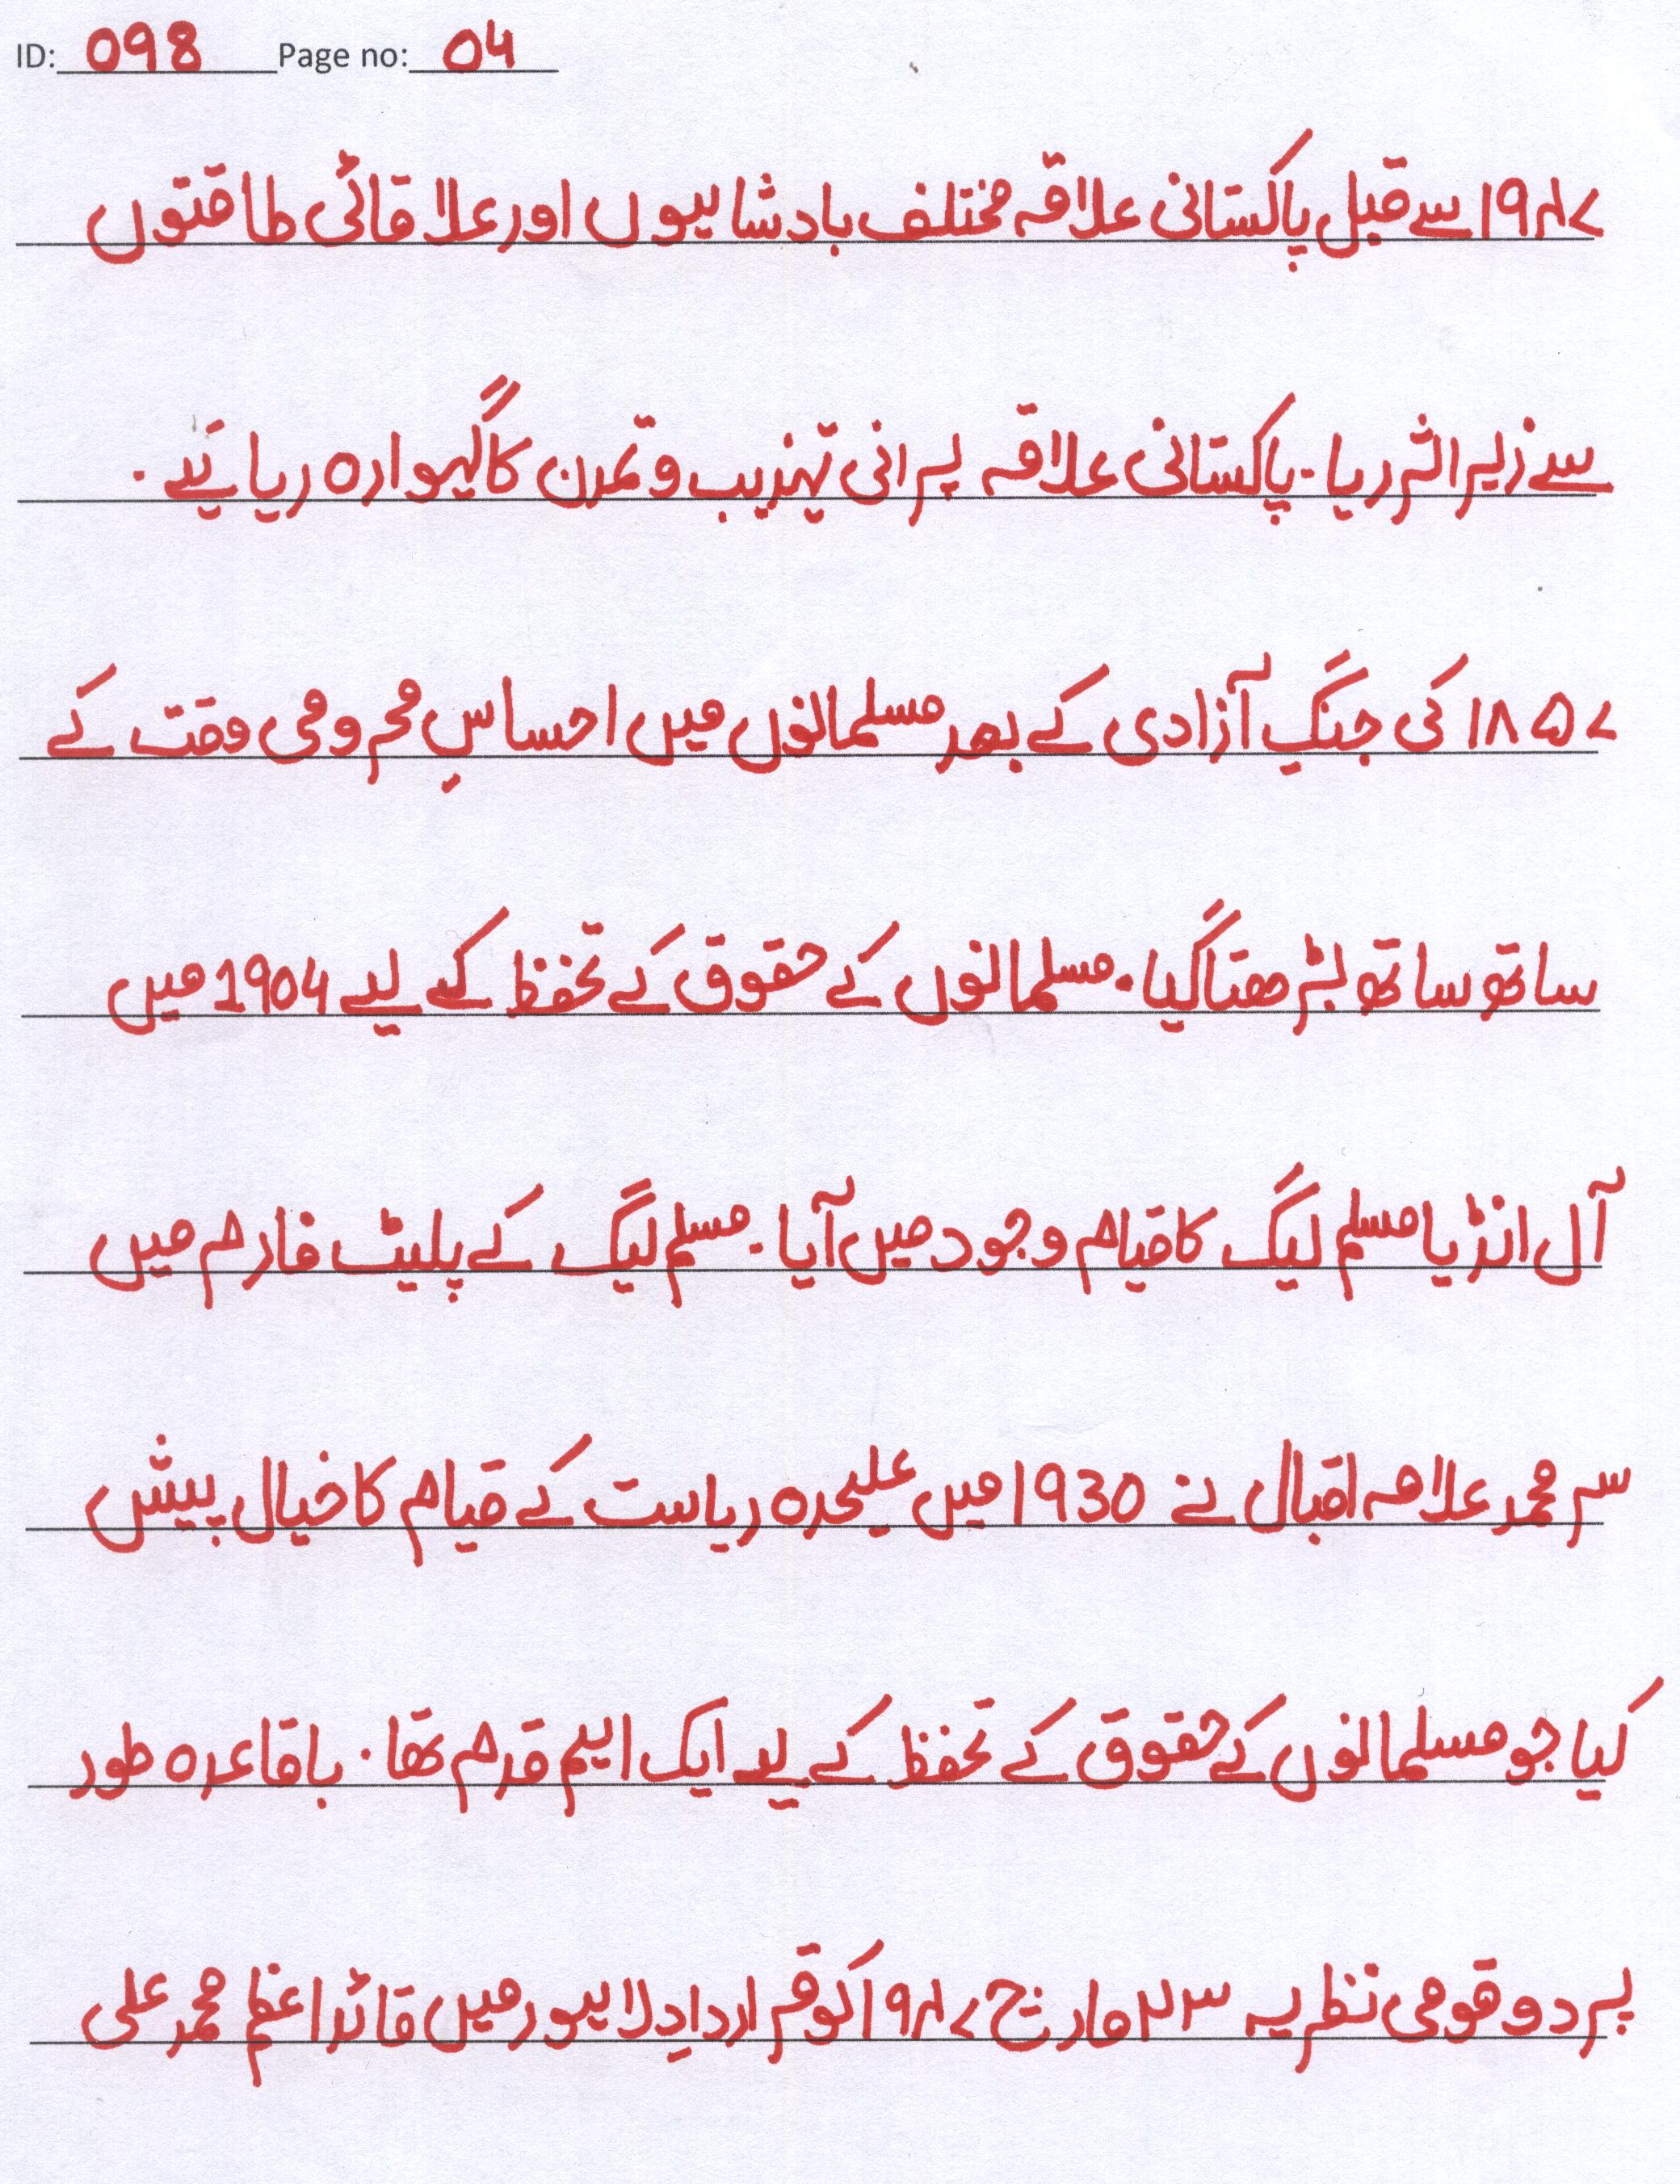 ID: 098 Page no: 04
۱۹۴۷ سے قبل پاکستانی علاقہ مختلف بادشاہیوں اور علاقائی طاقتوں
سے زیر اثر رہا۔ پاکستانی علاقہ پرانی تہذیب و تمدن کا گہوارہ رہا ہے۔
۱۸۵۷ کی جنگِ آزادی کے بعد مسلمانوں میں احساسِ محرومی وقت کے
ساتھ ساتھ بڑھتا گیا۔ مسلمانوں کے حقوق کے تحفظ کے لیے 1904 میں
آل انڈیا مسلم لیگ کا قیام وجود میں آیا۔ مسلم لیگ کے پلیٹ فارم میں
سر محمد علامہ اقبال نے 1930 میں علیحدہ ریاست کے قیام کا خیال پیش
کیا جو مسلمانوں کے حقوق کے تحفظ کے لیے ایک اہم قدم تھا۔ باقاعدہ طور
پر دو قومی نظریہ ۲۳ مارچ ۱۹۴۷ کو قراردادِ لاہور میں قائداعظم محمد علی